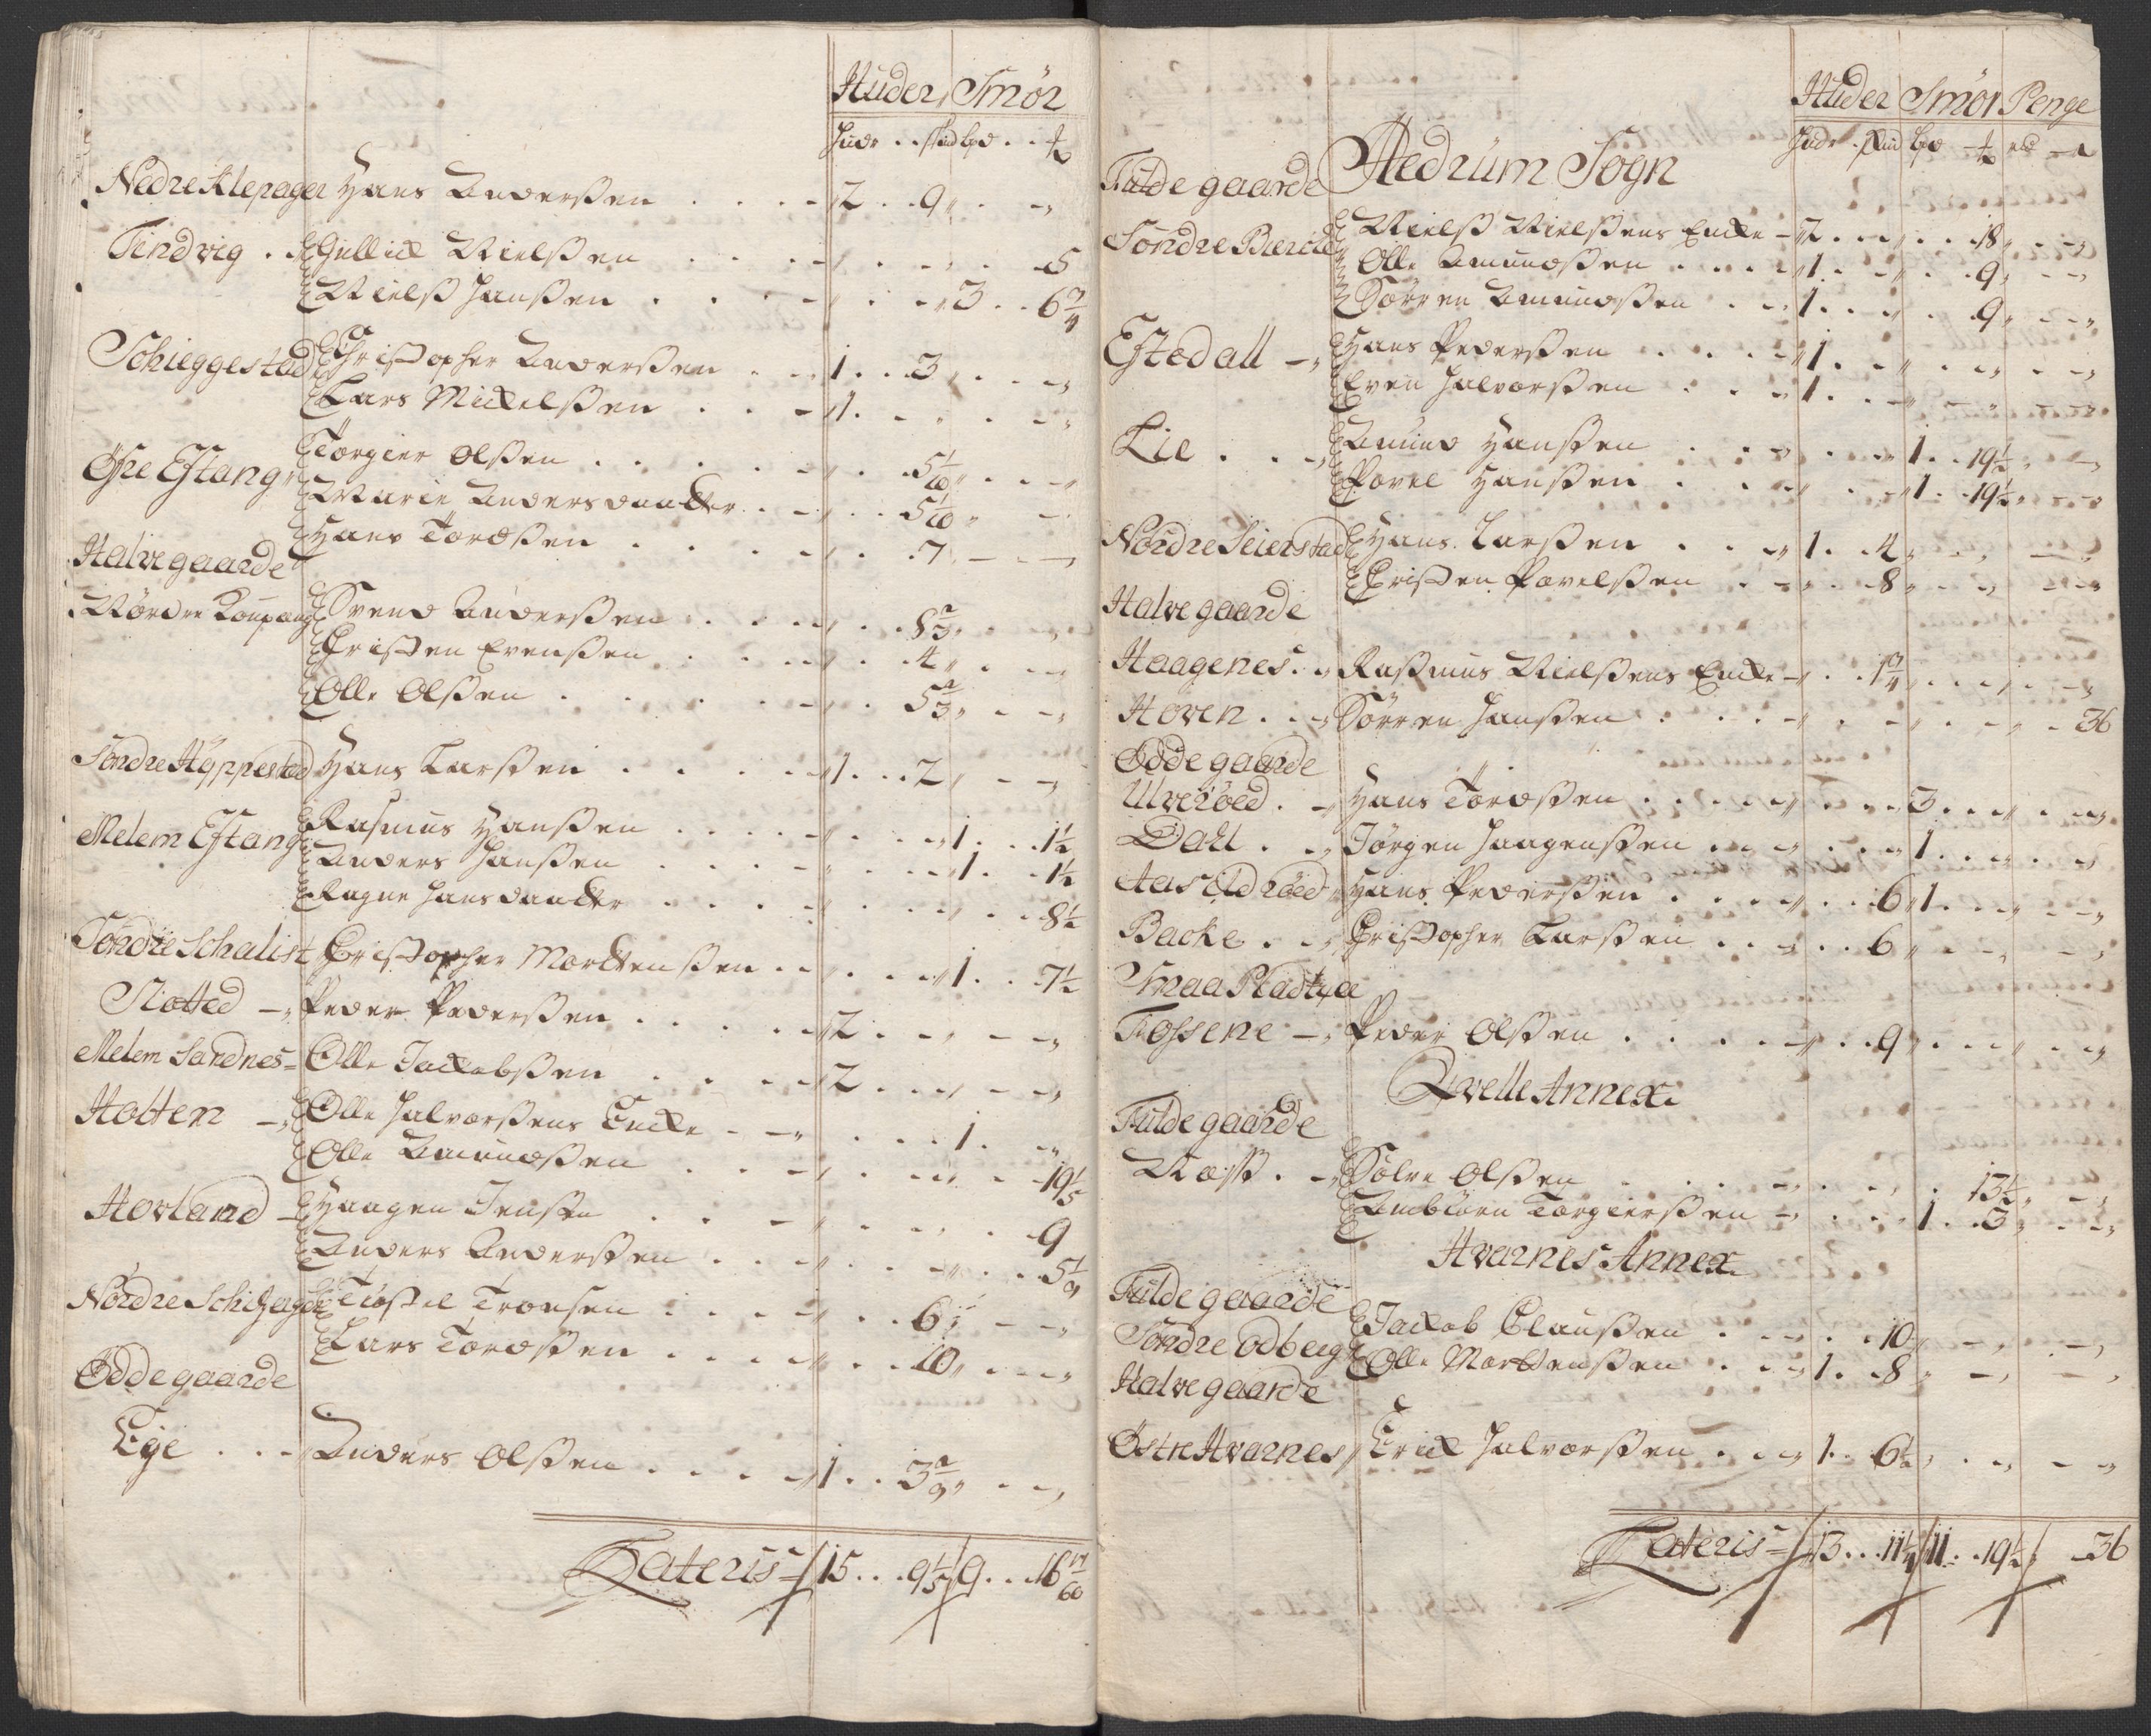 Huder Smör
hudr . . skind bpd . . ℔
Nedre Klepager Hans Anderßen . . . . 2 . . 9 „ . „
Tendvig . . Gullick Nielßen . . . . „ . . „ . . 5
Nielß Hanßen . . . . „ . . „ 3 . . 6 3/4
Schieggestad Christopher Anderßen . . 1 . . 3 „ . . „
Lars Mickelßen . . . 1 . . „ . . „
Öfre Eftang Torgier Olßen . . . . „ . . 5 1/10 „ . . „
Marie Andersdaatter . . „ . . 5 1/10 „ . . „
Hans Tordßen . . . . „ . . 7 „ . . „
Halve gaarde
Nördre Koupang Svend Anderßen . . . „ . . 8 2/3 „ . . „
Christen Evenßen . . . „ . . 4 „ . . „
Olle Olßen . . . . „ . . 5 2/3 „ . . „
Söndre Höppestad Hans Larßen . . . . 1 . . 2 „ . . „
Melem Eftang Rasmus Hanßen . . . . „ . . „ 1 . . 1 1/2
Anders Hanßen . . . . „ . . „ 1 . . 1 1/2
Ragne Hansdaatter . . . . „ . . „ . . 8 1/2
Söndre Schalist Christopher Mortenßen . . „ . . „ 1 . . 7 1/2
Slotted – Peder Pederßen . . . . 2 . . „ . . „
Melem Sandnes = Olle Jackobßen . . . . 2 . . „ . . „
Holten – Olle Halvorßens Encke – „ . . . 1 . . „
Olle Amundßen . . . „ . . „ . . 19 1/5
Hovland – Haagen Jenßen . . . „ . . „ . . 9
Anders Anderßen . . . „ . . „ . . 5 1/9
Nordre Tiostel Tronsen . . . . „ . . 6 „ . . „
Lars Tordßen . . . . „ . . 10 „ . . „
Ödde gaarde
Ege . . . Anders Olßen . . . . 1 . . 3 2/9 „ . . „
Lateris 15 . . 9 1/5 9 . . 16 17/60
Huder Smör Penge
Hudr . skind bpd ℔ rd
Hedrüm Sogn
Fulde gaarde
Söndre Nielß Nielßens Encke – 2 . . „ . . 18 „ . „
Olle Amundßen . . . . 1 . . „ . . 9 „ . „
Sörren Amundßen . . 1 . . „ . . 9 „ . . „
Eftedall – Hans Pederßen . . . . 1 . . „ . . „ . . „
Even Halvorßen . . . 1 . . „ . . „ . . „
Lie . . . Amund Hanßen . . . . . „ 1 . . 19 1/2 „ . „
Povel Hanßen . . . . . „ 1 . . 19 1/2 „ . . „
Nordre Seierstad Hans Larßen . . . 1 . . 4 „ . . „ . . „
Christen Povelßen . . „ . . 8 „ . . „ . . „
Halve gaarde
Haagenes . . Raßmus Nielßens Encke – „ . . 1 3/4 „ . . „ . . „
Hoven . . . Sörren Hanßen . . . . „ . . „ . . „ . . 36
Ödde gaarde
Ulveröed . – Hans Tordßen . . . . „ . . „ 3 . . „ . . „
Dall . . . Jörgen Haagenßen . . „ . . „ 1 . . „ . . „
Aasildröed Hans Pederßen . . . . „ . . 6 1 . . „ . . „
Backe . . . Christopher Larßen . . „ . . 6 „ . . „ . . „
Smaa
Fossene – Peder Olßen . . . . „ . . 9 „ . . „ . . „
Qvelle Annex
Fulde gaarde
Næss . – Sölve Olßen . . . . „ . . „ . . 13 1/2 „ . „
Anbiörn Torgierßen – . . . 1 . . 3 „ . . „
Hvarnes Annex
Fulde gaarde
Söndre Odberg Jackob Claußen . . . „ . . 10 „ . . „ . . „
Olle Mortenßen . . 1 . . 8 „ . . „ . . „
Halve gaarde
Östre Hvarnes Erick Halvorßen . . . 1 . . 6 1/2 „ . . „ . . „
Lateris 13 . . 11 1/4 11 . . 19 1/2 „ 36